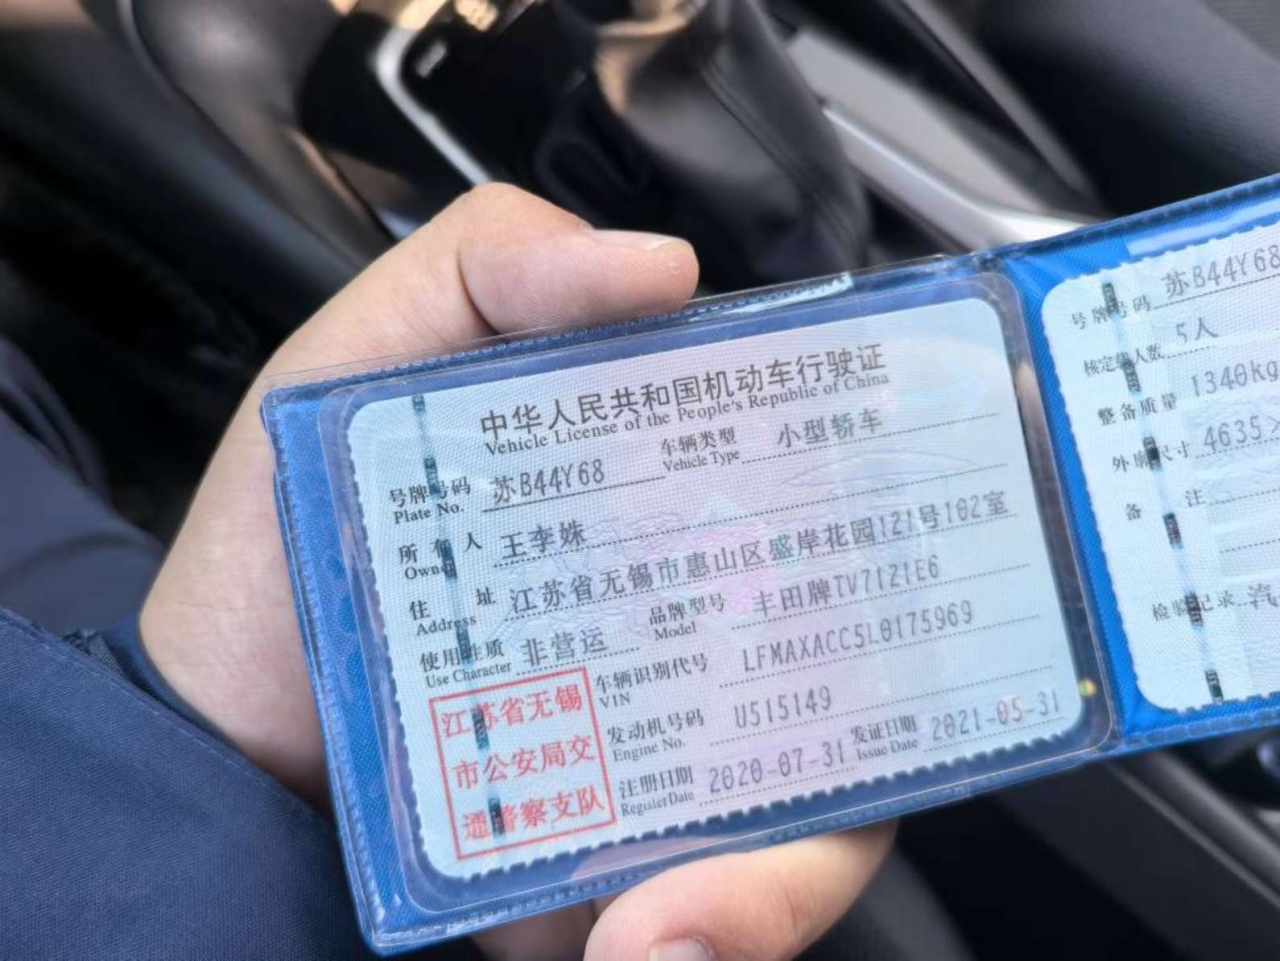 中华人民共和国机动车行驶证
Vehicle License of the People's Republic of China
号牌号码 苏B44Y68 车辆类型 小型轿车
Plate No. Vehicle Type
所有人 王李姝
Owner
住址 江苏省无锡市惠山区盛岸花园121号102室
Address
使用性质 非营运 品牌型号 丰田牌TV7121E6
Use Character Model
车辆识别代号 LFMAXACC5L0175969
VIN
发动机号码 U515149
Engine No.
注册日期 2020-07-31 发证日期 2021-05-31
Register Date Issue Date
江苏省无锡
市公安局交
通警察支队
号牌号码 苏B44Y68
核定载人数 5人
整备质量 1340kg
外廓尺寸 4635×
备注
检验记录 汽